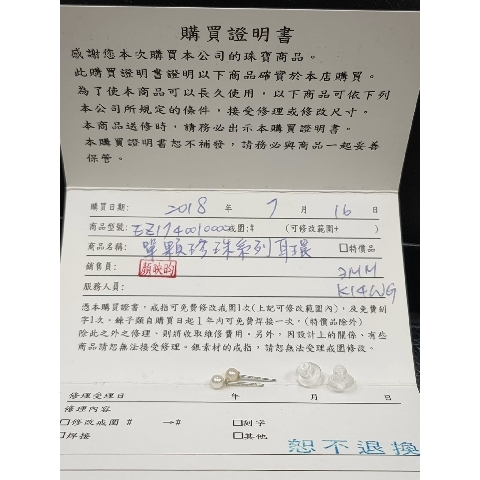 購買證明書
感謝您本次購買本公司的珠寶商品。
此購買證明書證明以下商品確實於本店購買。
為了使本商品可以長久使用，以下商品可依下列
本公司所規定的條件，接受修理或修改尺寸。
本商品送修時，請務必出示本購買證明書。
本購買證明書恕不補發，請務必與商品一起妥善
保管。
購買日期： 2018 年 7 月 16 日
商品型號：EZ1740010000戒圍：# (可修改範圍+ )
商品名稱： 單顆珍珠系列耳環 □特價品
銷售員： 3MM
服務人員： K14WG
憑本購買證明，戒指可免費修改戒圍1次(上記可修改範圍內)，及免費刻
字1次。鍊子類自購買日起1年內可免費焊接一次，(特價品除外)
除此之外之修理，則將收取維修費用。另外，因設計上的關係、有些
商品請恕無法接受修理。銀素材的戒指，請恕無法受理戒圍修改。
修理受理日 年 月 日
修理內容
□修改戒圍 # →# □刻字
□焊接 □其他
恕不退換